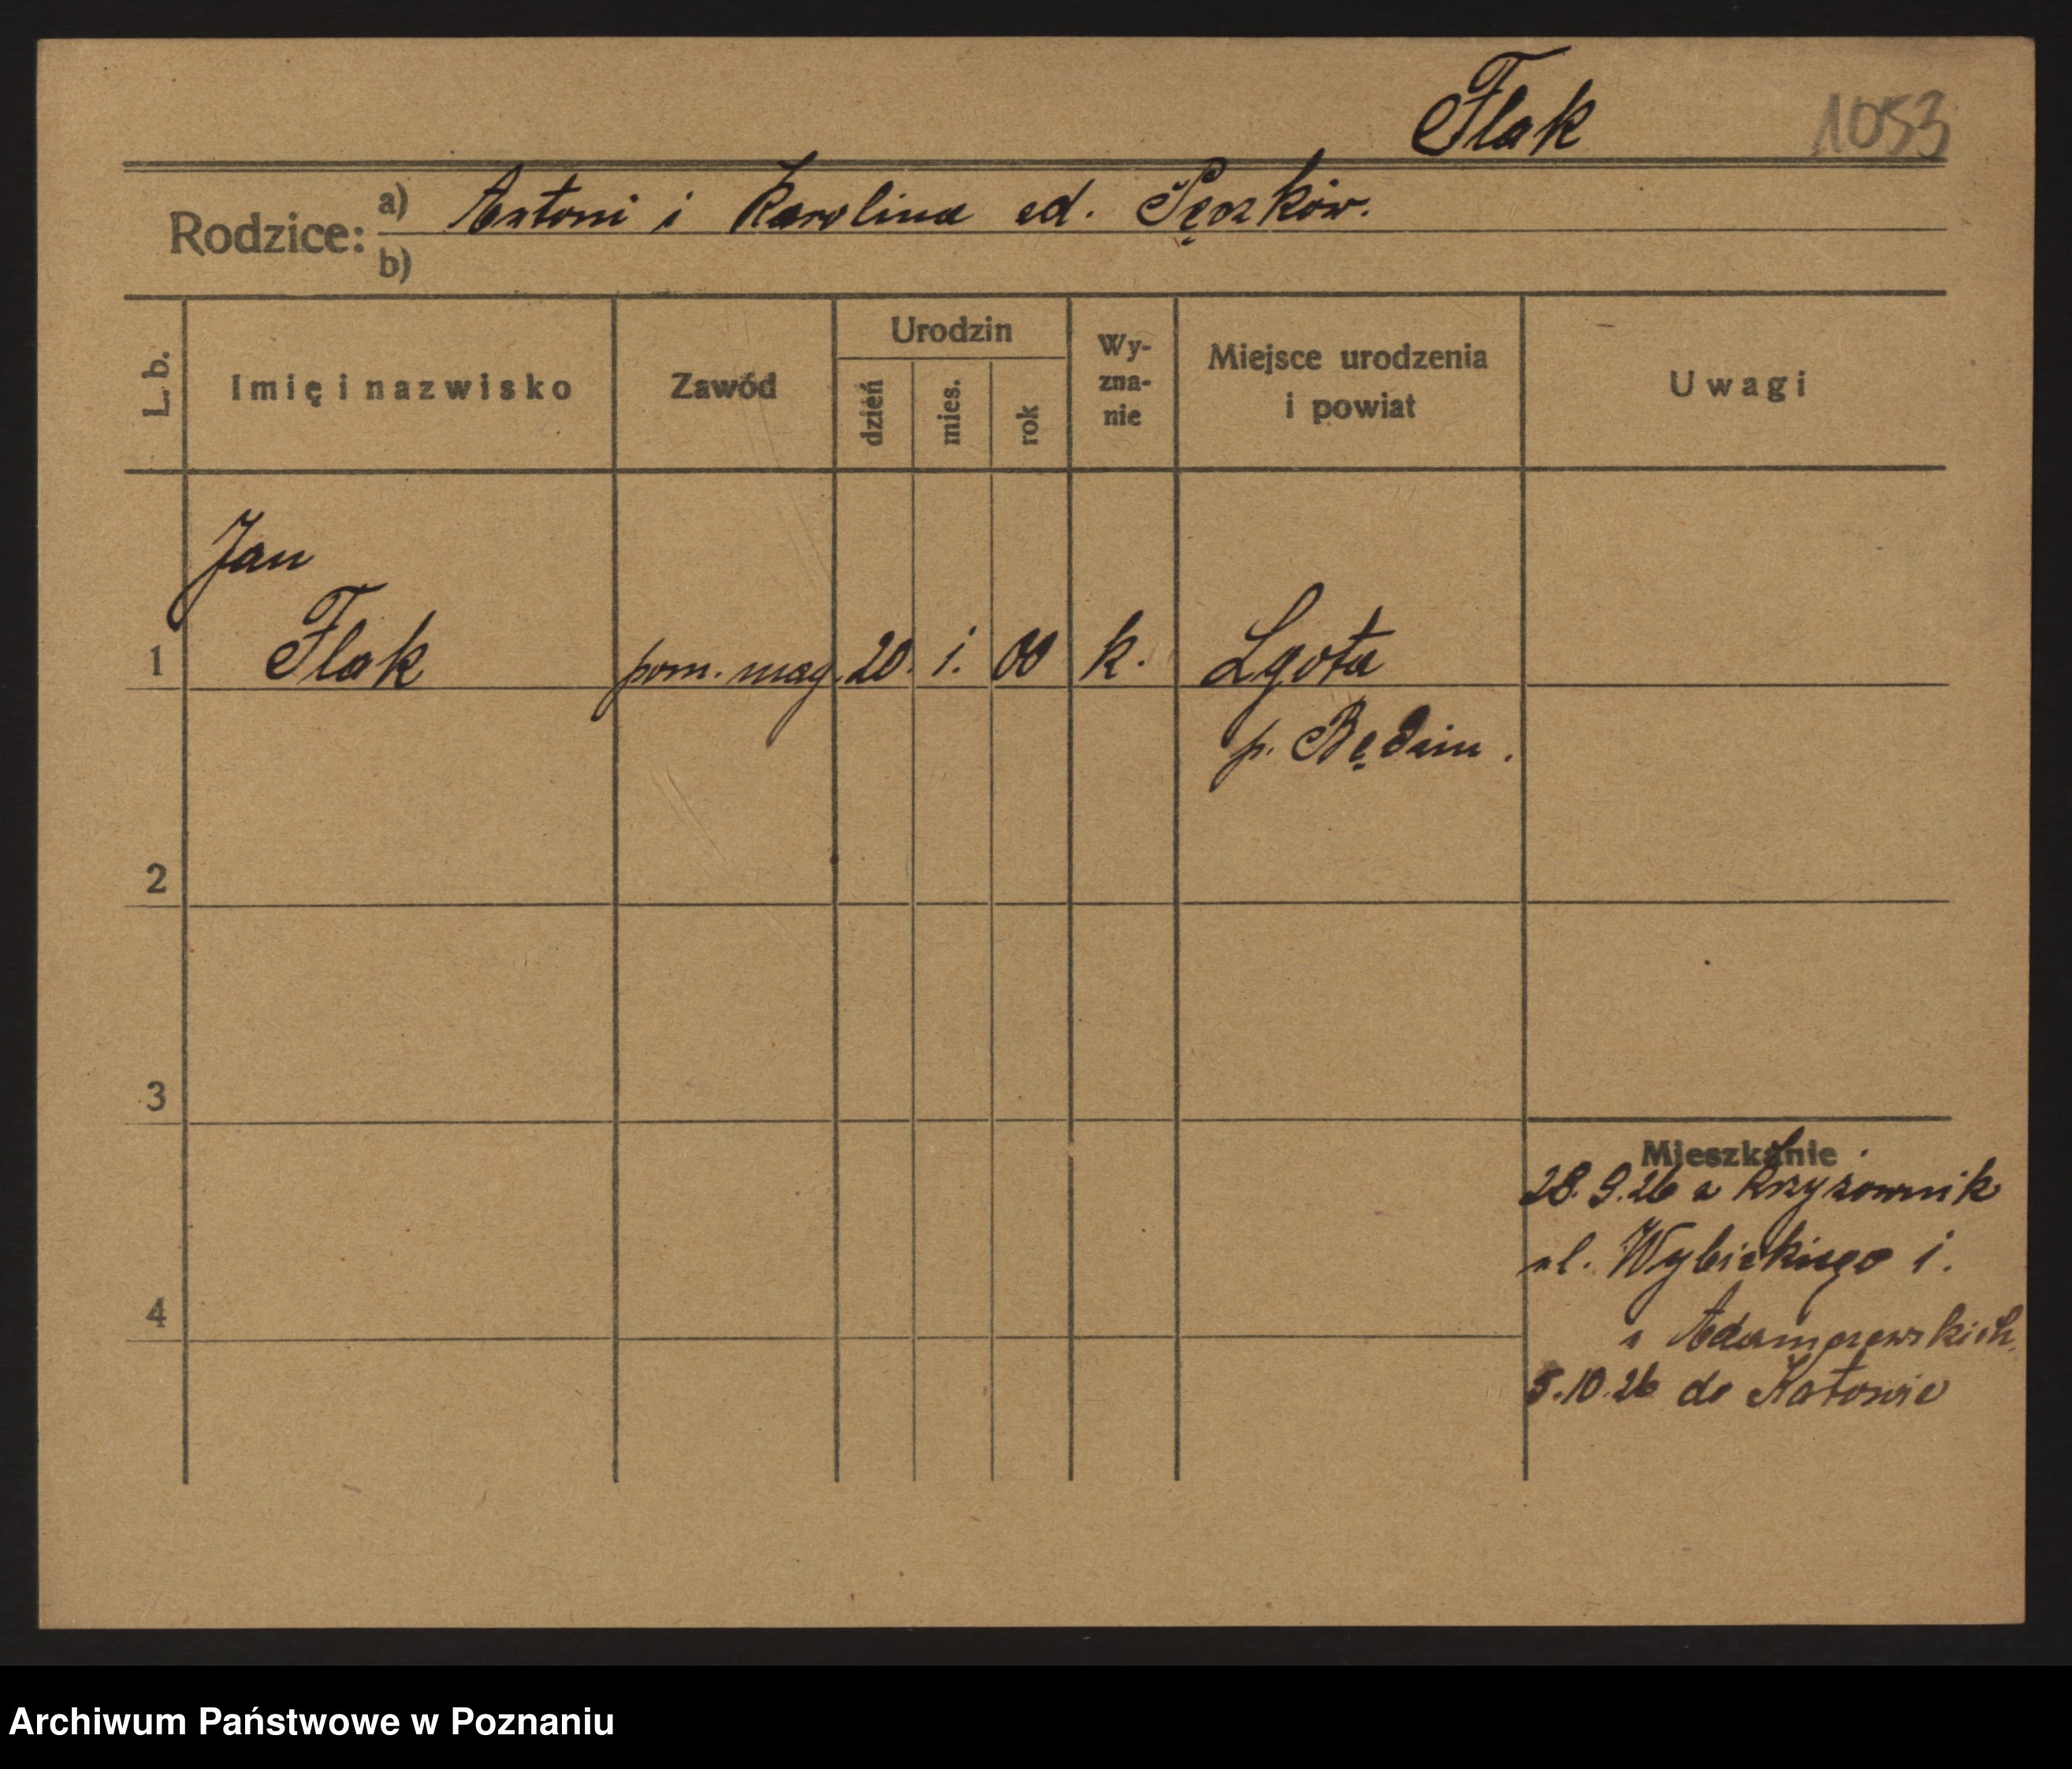 Flak
1053
Rodzice:
a) Antoni i Karolina
b)
L. b.
Imię i nazwisko
Zawód
Urodzin
dzień
mies.
rok
Wy-
zna-
nie
Miejsce urodzenia
i powiat
Uwagi
Jan
1 Flak pom. mag. 20. 1. 00 k. Lgota
p. Będzin.
2
3
4
Mieszkanie
28.9.26 z Krzyżownik
ul. Wybickiego 1.
5.10.26 do Katowic
Archiwum Państwowe w Poznaniu